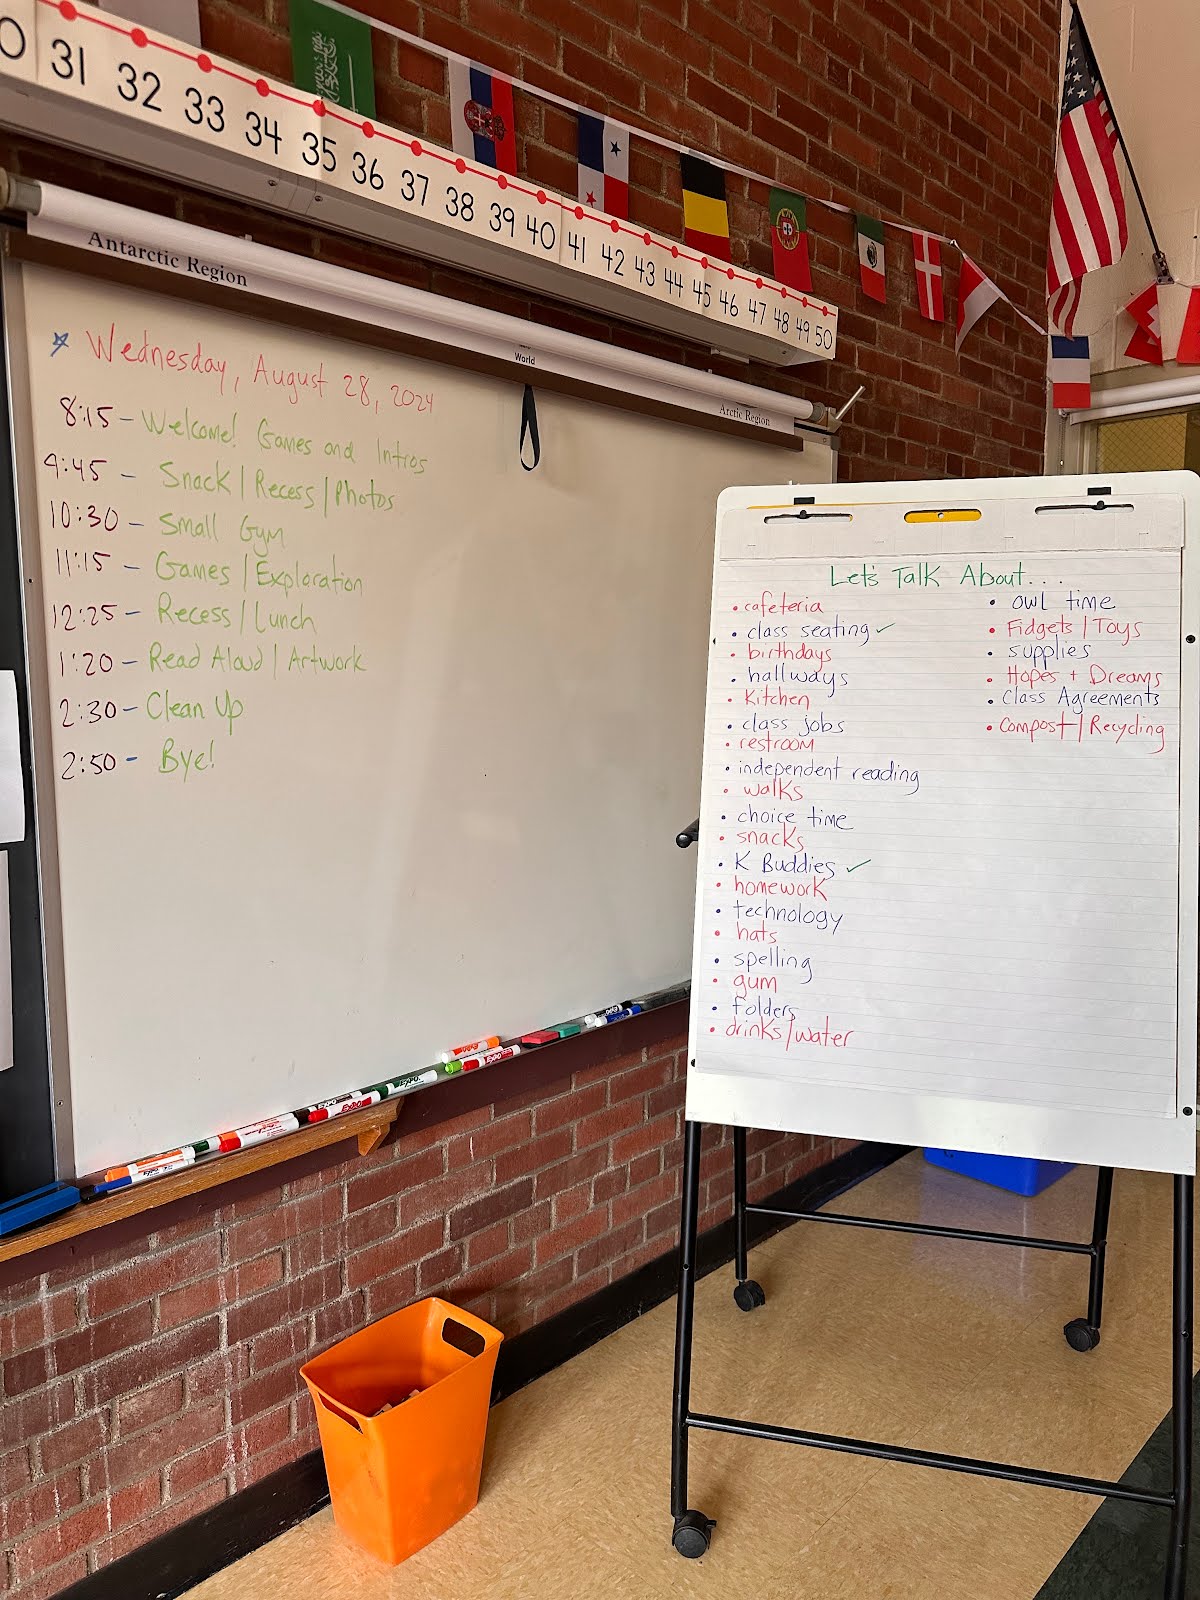 0 31 32 33 34 35 36 37 38 39 40 41 42 43 44 45 46 47 48 49 50
Antarctic Region
World
Arctic Region
Wednesday, August 28, 2024
8:15 – Welcome! Games and Intros
9:45 – Snack | Recess | Photos
10:30 – Small Gym
11:15 – Games | Exploration
12:25 – Recess | Lunch
1:20 – Read Aloud | Artwork
2:30 – Clean Up
2:50 – Bye!
Let's Talk About...
• cafeteria
• class seating ✓
• birthdays
• hallways
• Kitchen
• class jobs
• restroom
• independent reading
• walks
• choice time
• snacks
• K Buddies ✓
• homework
• technology
• hats
• spelling
• gum
• folders
• drinks/water
• owl time
• Fidgets | Toys
• supplies
• Hopes + Dreams
• Class Agreements
• Compost | Recycling
EXPO